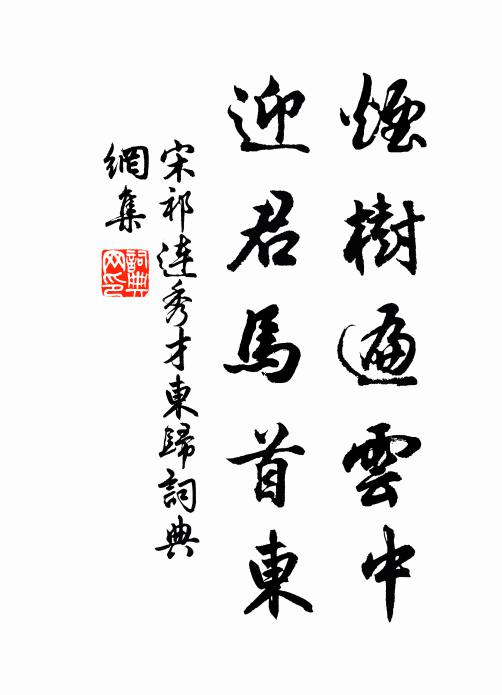 煙樹遍雲中
迎君馬首東
宋祁連秀才東歸詞典
網集
詞典網印